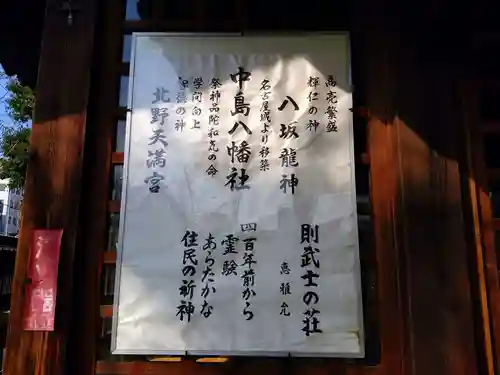 商売繁盛
輝仁の神
八坂龍神
名古屋城より移築
中島八幡社
祭神品陀和気の命
学問向上
和徳の神
北野天満宮
則武士の荘
恵雅允
四百年前から
霊験
あらたかな
住民の祈神